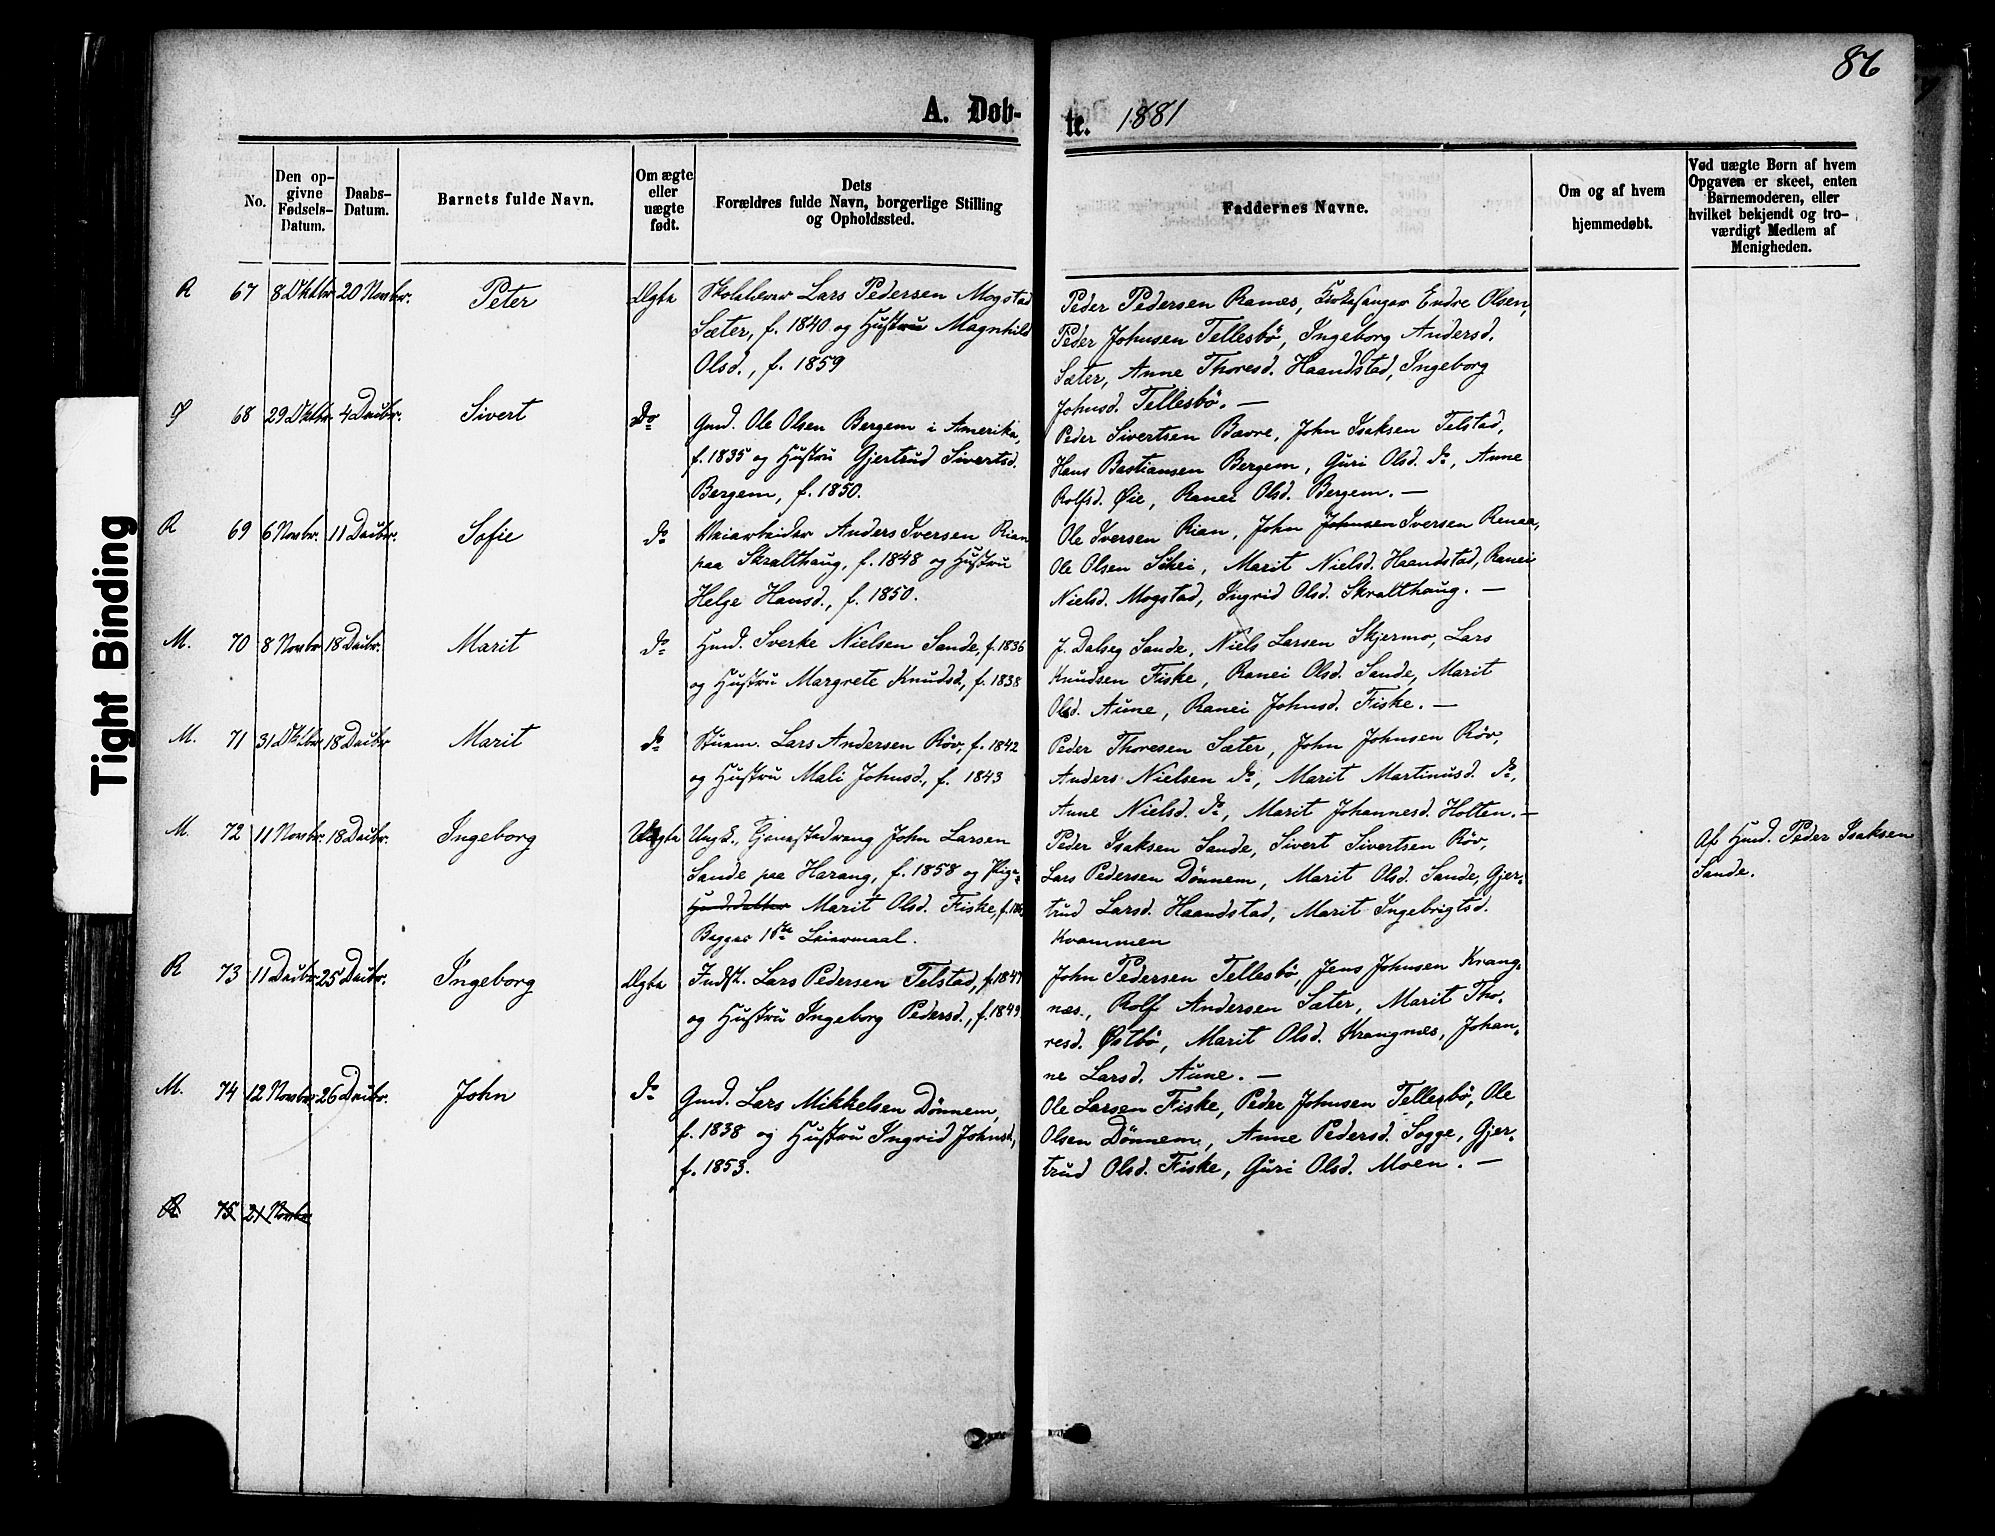 86
A. Døb-
te. 1881
No.
Den op-
givne
Fødsels-
Datum.
Daabs-
Datum.
Barnets fulde Navn.
Om ægte
eller
uægte
født.
Dets
Forældres fulde Navn, borgerlige Stilling
og Opholdssted.
Faddernes Navne.
Om og af hvem
hjemmedøbt.
Ved uægte Børn af hvem
Opgaven er skeet, enten
Barnemoderen, eller
hvilket bekjendt og tro-
værdigt Medlem af
Menigheden.
R 67 8 Oktbr. 20 Novbr. Peter Ægte
Skolelærer Lars Pedersen Mogstad
Sæter, f. 1840 og Hustru Magnhild
Olsd., f. 1859
Peder Pedersen Ranæs, Kirkesanger Endre Olsen,
Peder Johnsen Tellesbö, Ingeborg Andersd.
Sæter, Anne Thoresd. Haandstad, Ingeborg
Johnsd. Tellesbö. —
68 29 Oktbr. 4 Decbr. Sivert Do
Gmd. Ole Olsen Bergem i Amerika,
f. 1835 og Hustru Gjertrud Sivertsd.
Bergem, f. 1850.
Peder Sivertsen Bævre, John Isaksen Telstad,
Hans Bastiansen Bergem, Guri Olsd. do, Anne
Rolfsd. Øie, Ranei Olsd. Bergem. —
R 69 6 Novbr. 11 Decbr. Sofie do
Veiarbeider Anders Iversen Rian
paa Skralthaug, f. 1848 og Hustru
Helge Hansd., f. 1850.
Ole Iversen Rian, John Johnsen Iversen Renaa,
Ole Olsen Schei, Marit Nielsd. Haandstad, Ranei
Nielsd. Mogstad, Ingrid Olsd. Skralthaug. —
M. 70 8 Novbr 18 Decbr. Marit do
Hmd. Sverke Nielsen Sande, f. 1836
og Hustru Margrete Knudsd., f. 1838
J. Dalseg Sande, Niels Larsen Skjermo, Lars
Knudsen Fiske, Ranei Olsd. Sande, Marit
Olsd. Aune, Ranei Johnsd. Fiske. —
M. 71 31 Oktbr. 18 Decbr Marit do
Lars Andersen Röv, f. 1842
og Hustru Mali Johnsd., f. 1843
Peder Thoresen Sæter, John Johnsen Röv,
Anders Nielsen do, Marit Martinusd. do,
Anne Nielsd. do, Marit Johannesd. Holten. —
M. 72 11 Novbr. 18 Decbr. Ingeborg Uægte
Ungk., John Larsen
Sande paa Harang, f. 1858 og Pige
Marit Olsd. Fiske,
Begges 1ste Leiermaal.
Peder Isaksen Sande, Sivert Sivertsen Röv,
Lars Pedersen Dönnem, Marit Olsd. Sande, Gjer-
trud Larsd. Haandstad, Marit Ingebrigtsd.
Kvammen
Af Hmd. Peder Isaksen
Sande.
R 73 11 Decbr. 25 Decbr. Ingeborg Ægte
Indst. Lars Pedersen Telstad, f. 1847
og Hustru Ingeborg Pedersd., f. 1849.
John Pedersen Tellesbö, Jens Johnsen Krang-
næs, Rolf Andersen Sæter, Marit Tho-
resd. Østbö, Marit Olsd. Krangnæs, Johan-
ne Larsd. Aune. —
M. 74 12 Novbr. 26 Decbr. John do
Gmd. Lars Mikkelsen Dönnem,
f. 1838 og Hustru Ingrid Johnsd.,
f. 1853.
Ole Larsen Fiske, Peder Johnsen Tellesbö, Ole
Olsen Dönnem, Anne Pedersd. Sogge, Gjer-
trud Olsd. Fiske, Guri Olsd. Moen. —
R 75 21 Novbr
Tight Binding